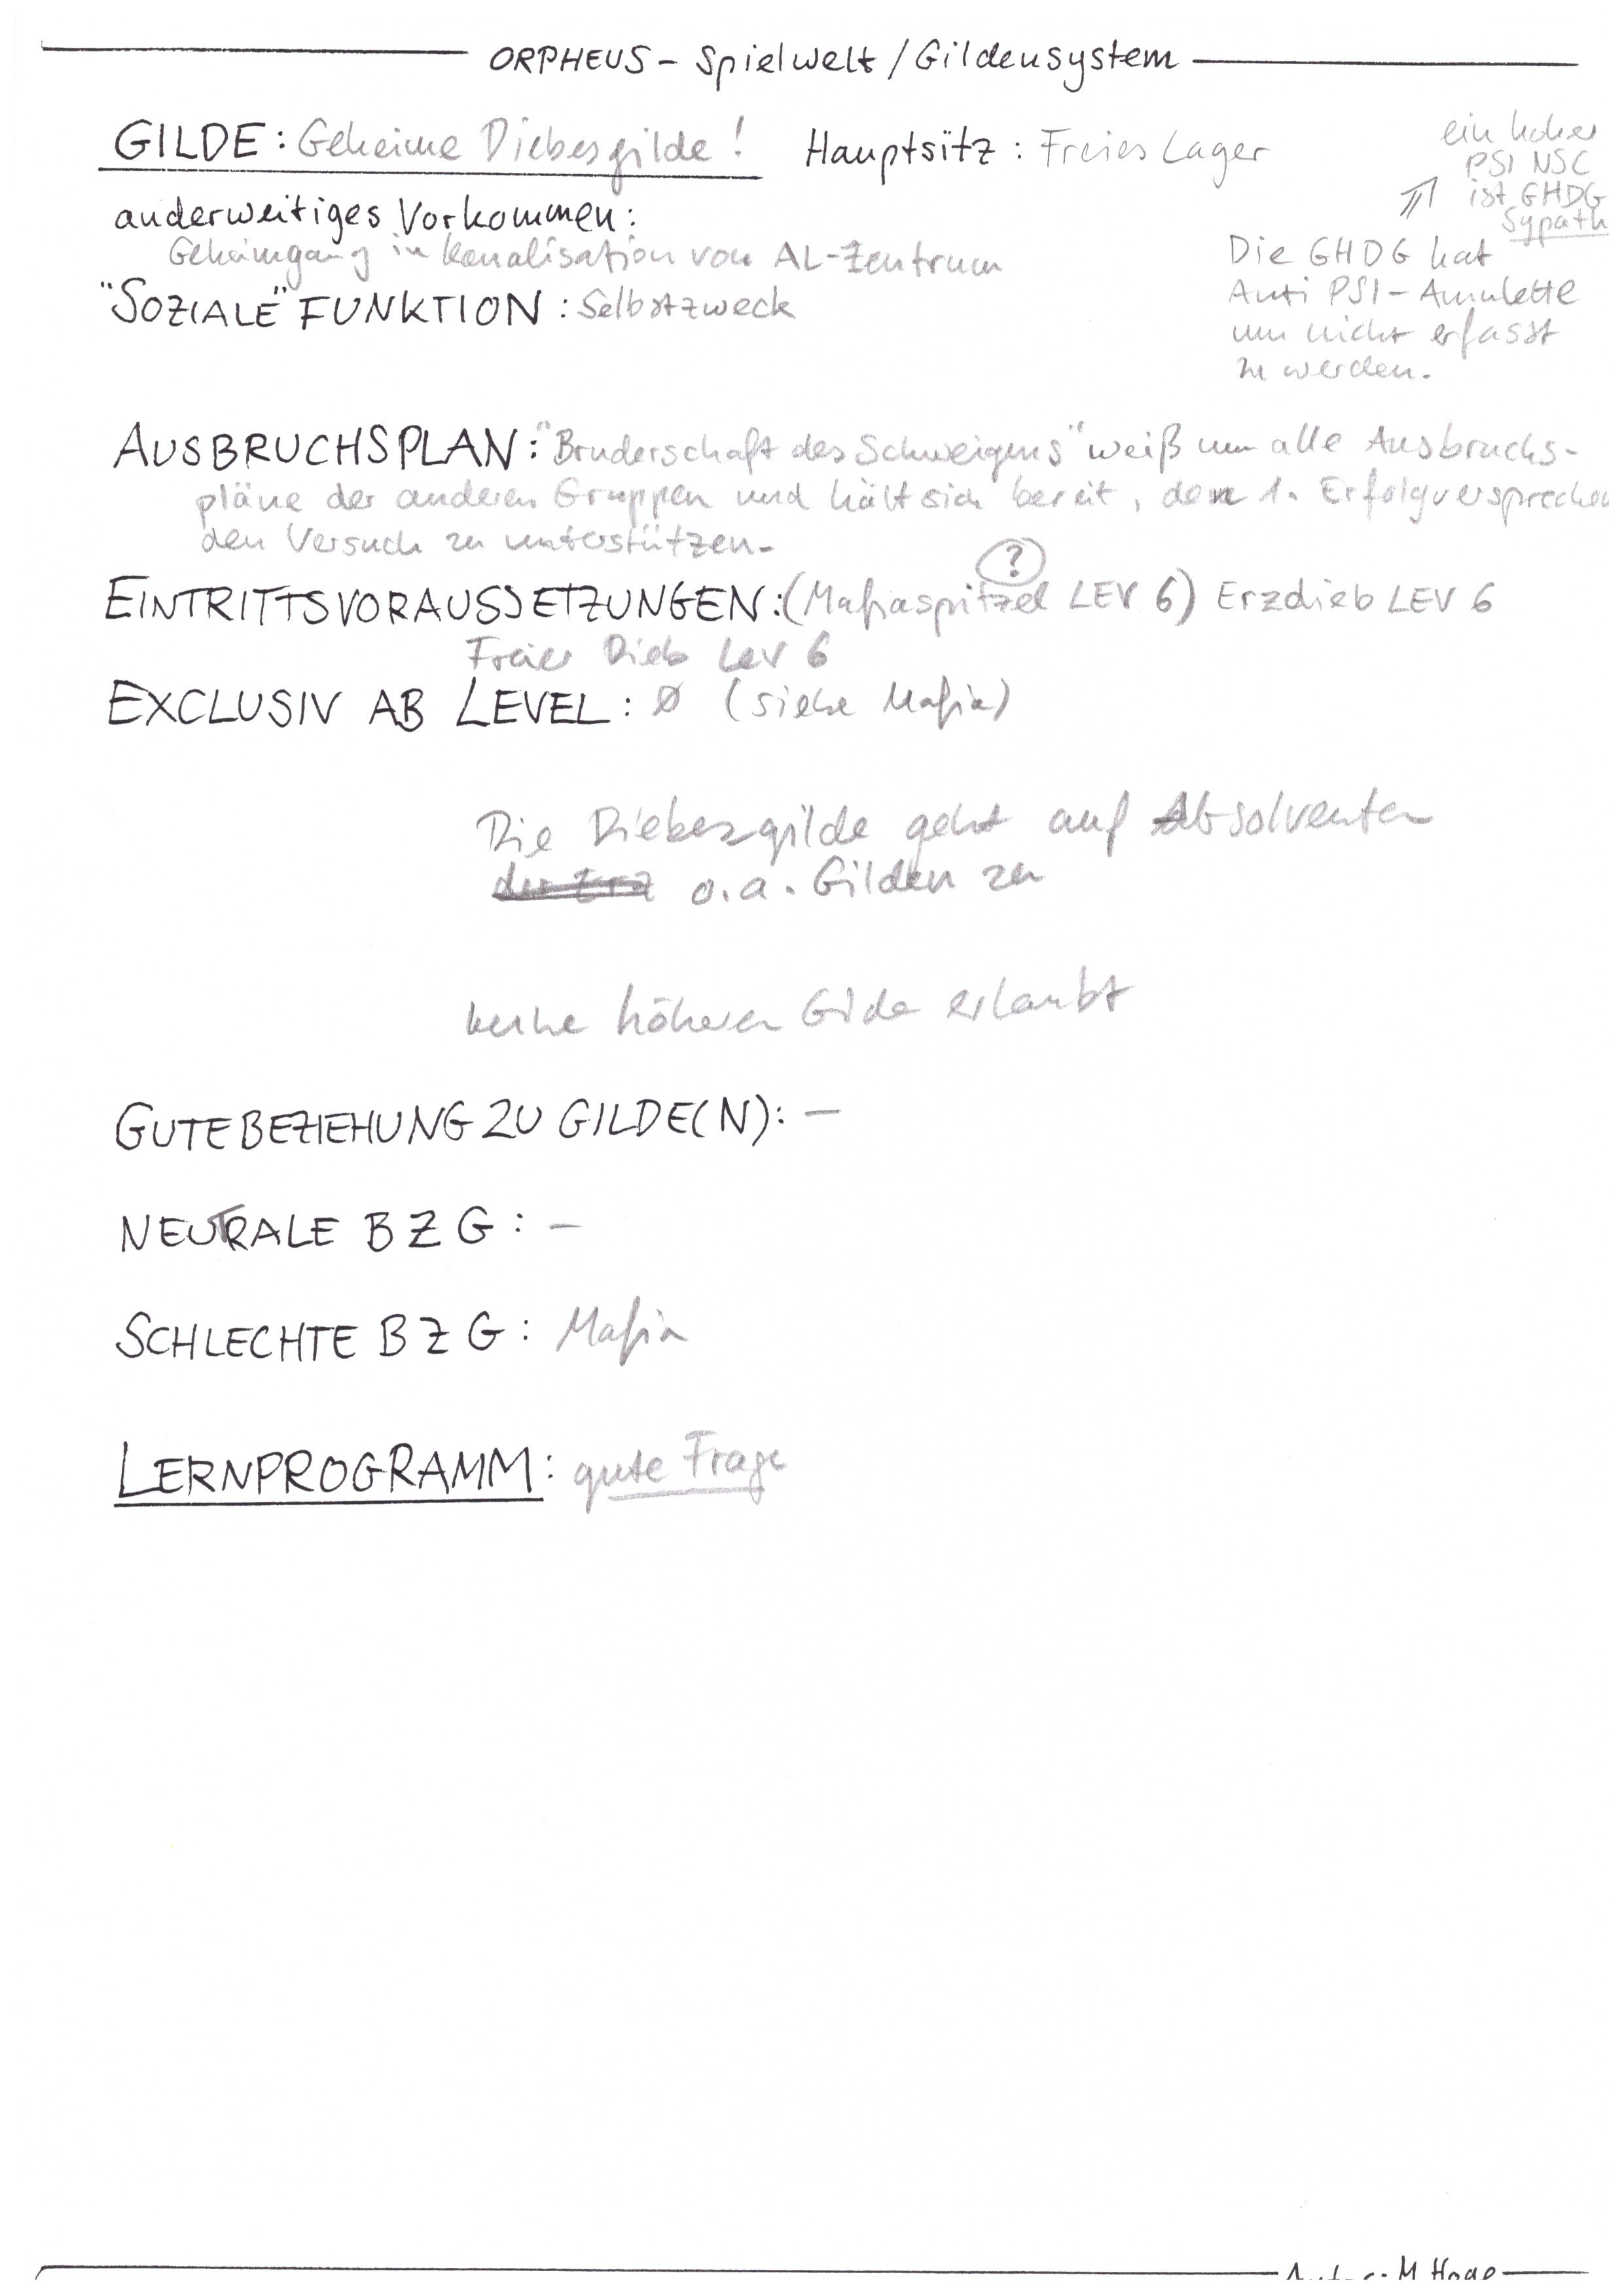 ORPHEUS - Spielwelt / Gildensystem
GILDE: Geheime Diebesgilde! Hauptsitz: Freies Lager
ein hoher
PSI NSC
ist GHDG
Sypath
anderweitiges Vorkommen:
Geheimgang in Kanalisation von AL-Zentrum
Die GHDG hat
Anti PSI-Amulette
um nicht erfasst
zu werden.
"SOZIALE" FUNKTION: Selbstzweck
AUSBRUCHSPLAN: "Bruderschaft des Schweigens" weiß um alle Ausbruchs-
pläne der anderen Gruppen und hält sich bereit, den 1. Erfolgversprechen
den Versuch zu unterstützen.
?
EINTRITTSVORAUSSETZUNGEN: (Mafiaspitzel LEV 6) Erzdieb LEV 6
Freier Dieb Lev 6
EXCLUSIV AB LEVEL: Ø (siehe Mafia)
Die Diebesgilde geht auf Absolventen
der Erz o.a. Gilden zu
keine höheren Gilde erlaubt
GUTE BEZIEHUNG ZU GILDE(N): -
NEUTRALE BZG: -
SCHLECHTE BZG: Mafia
LERNPROGRAMM: gute Frage